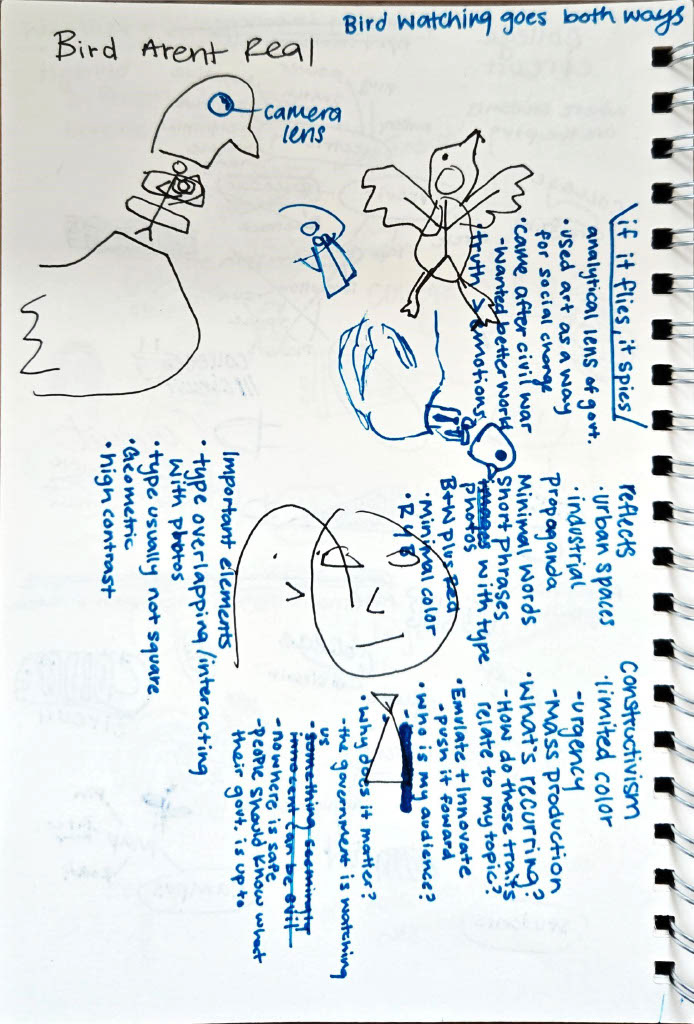 Bird Watching goes both ways
Bird Arent Real
camera
lens
if it flies, it spies
analytical lens of govt.
• used art as a way
for social change
• came after civil war
- wanted better world
• truth > emotions
reflects
• urban spaces
• industrial
propaganda
Minimal words
Short phrases
photos with type
B+W plus red
• Minimal color
• R Y B
Constructivism
• limited color
- urgency
- Mass production
• What's recurring?
- How do these traits
relate to my topic?
Emulate + Innovate
- push it foward
• Who is my audience?
• Why does it matter?
- the government is watching
us
- something seemingly
innocent can be evil
- nowhere is safe
- people should know what
their govt. is up to
Important elements
• type overlapping/interacting
with photos
• type usually not square
• Geometric
• high contrast